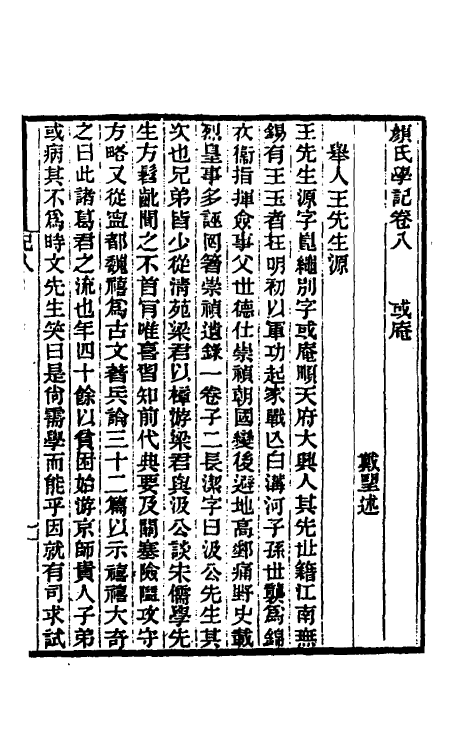 顏氏學記卷八　　或庵
戴望述
舉人王先生源
王先生源字崑繩別字或庵順天府大興人其先世籍江南無
錫有王玉者在明初以軍功起家戰亾白溝河子孫世襲爲錦
衣衞指揮僉事父世德仕崇禎朝國變後避地高郵痛野史載
烈皇事多誣罔箸崇禎遺錄一卷子二長潔字曰汲公先生其
次也兄弟皆少從清苑梁君以樟游梁君與汲公談宋儒學先
生方髫齔聞之不首肎唯喜習知前代典要及關塞險隘攻守
方略又從寧都魏禧爲古文著兵論三十二篇以示禧禧大奇
之曰此諸葛君之流也年四十餘以貧困始游京師貴人子弟
或病其不爲時文先生笑曰是尙需學而能乎因就有司求試